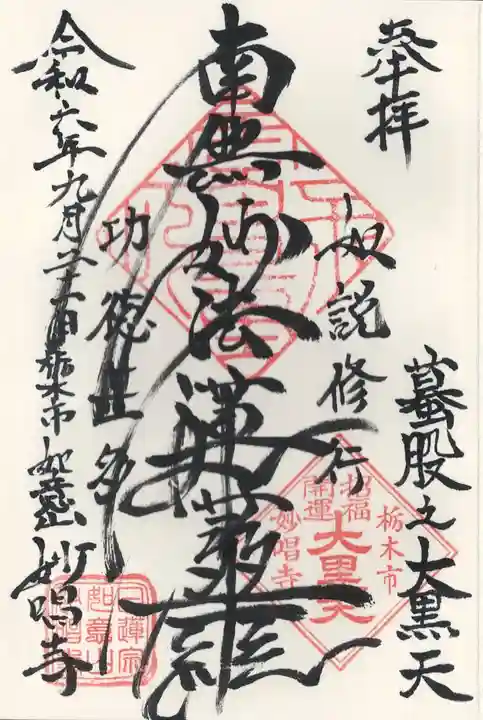 奉拝
蟇股之大黒天
如説修行
南無妙法蓮華経
功徳甚多
令和六年九月二十一日 栃木市 如意山 妙唱寺
栃木市
招福
開運
大黒天
妙唱寺
日蓮宗
如意山